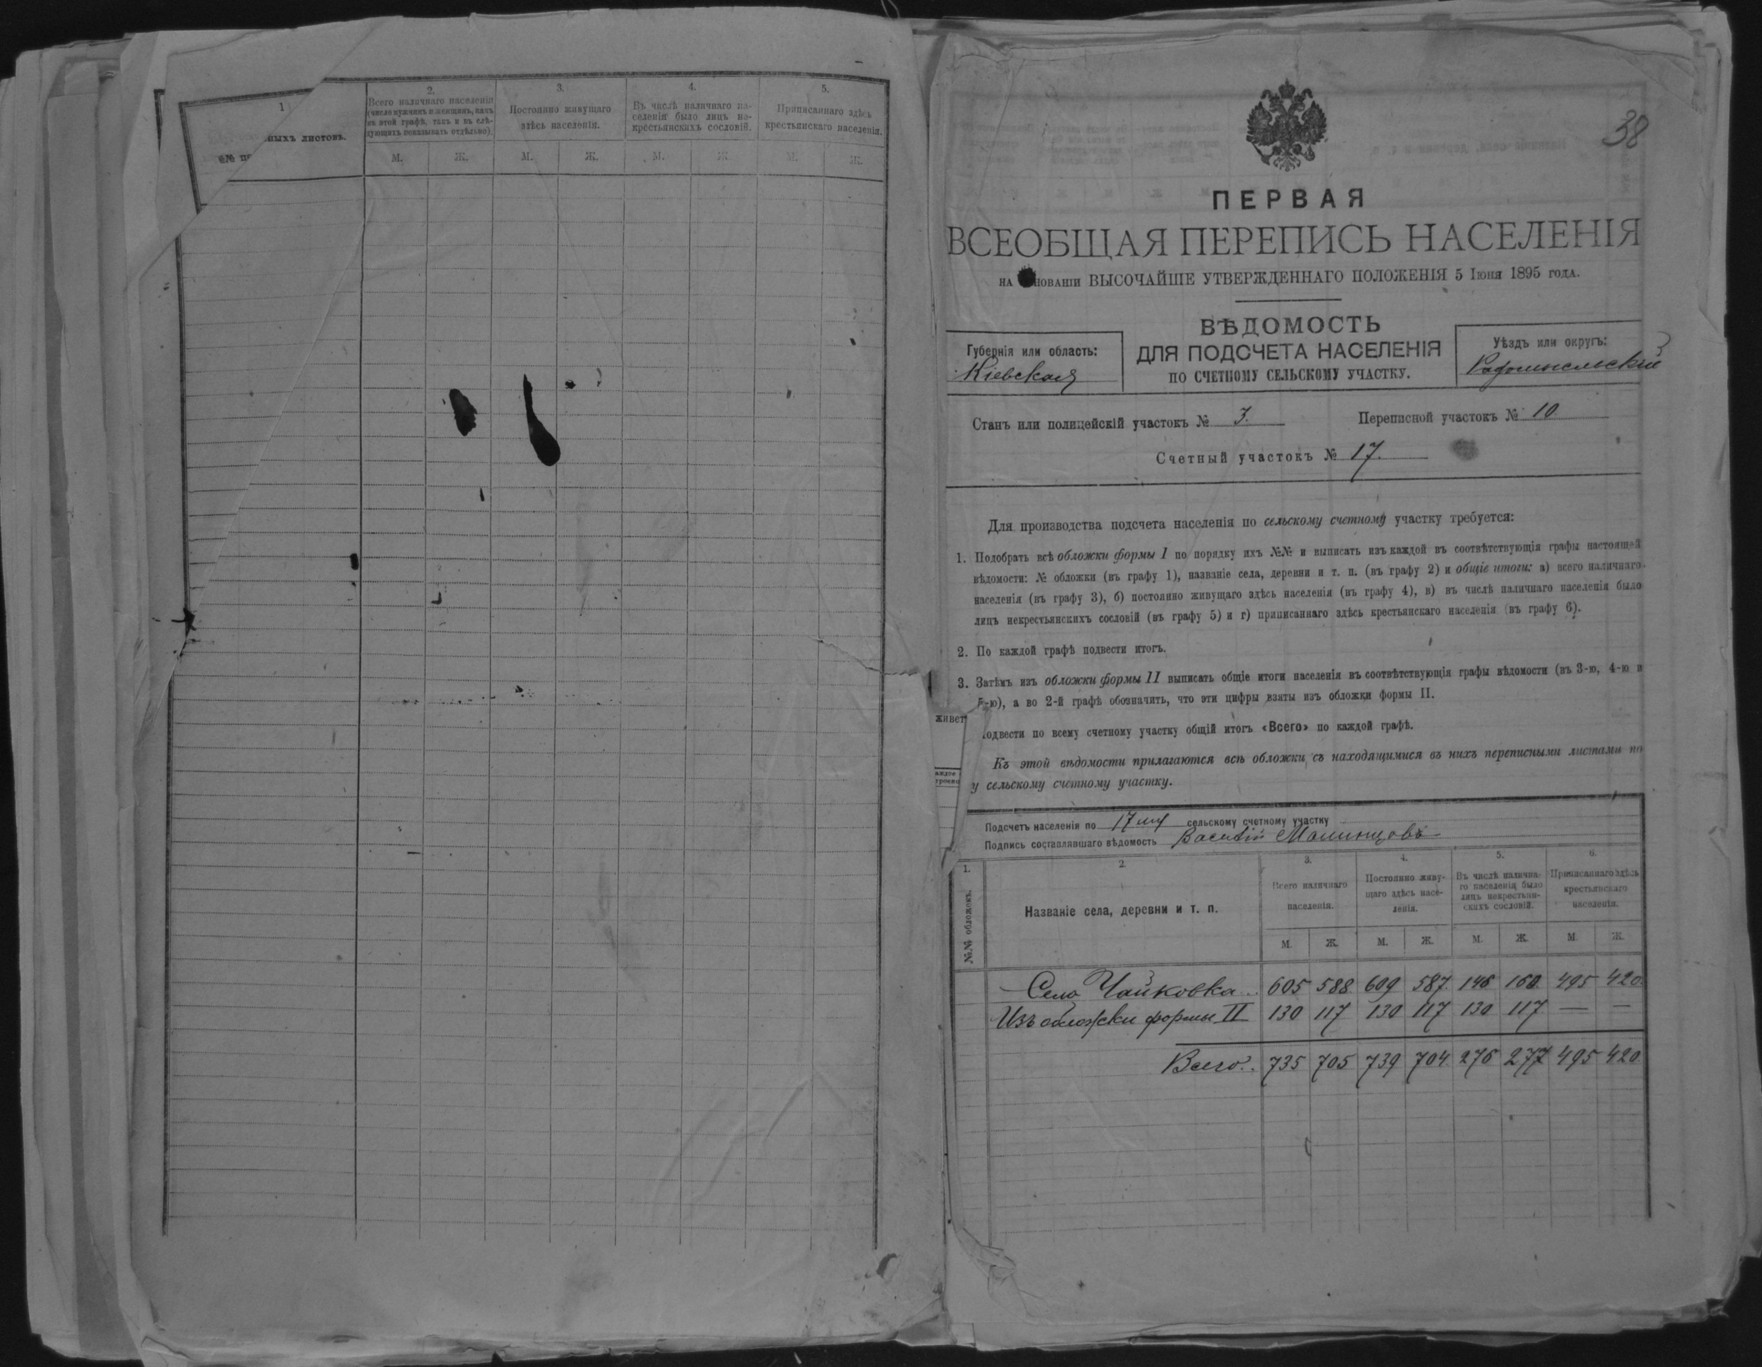 1
ныхъ листовъ.
№№ пе
2.
Всего наличнаго населенія
(число мужчин и женщинъ, какъ
въ этой графѣ, такъ и въ слѣ-
дующихъ показывать отдѣльно).
3.
Постоянно живущаго
здѣсь населенія.
4.
Въ числѣ наличнаго на-
селенія было лицъ не-
крестьянскахъ сословій.
5.
Приписаннаго здѣсь
крестьянскаго населенія.
М. Ж. М. Ж. М. Ж. М. Ж.
38
ПЕРВАЯ
ВСЕОБЩАЯ ПЕРЕПИСЬ НАСЕЛЕНІЯ
НА НОВАНІИ ВЫСОЧАЙШЕ УТВЕРЖДЕННАГО ПОЛОЖЕНІЯ 5 Іюня 1895 года.
ВѢДОМОСТЬ
ДЛЯ ПОДСЧЕТА НАСЕЛЕНІЯ
ПО СЧЕТНОМУ СЕЛЬСКОМУ УЧАСТКУ.
Губернія или область:
Кіевская
Уѣздъ или округъ:
Радомысльскій
Станъ или полицейскій участокъ № 3. Переписной участокъ № 10
Счетный участокъ № 17.
Для производства подсчета населенія по сельскому счетному участку требуется:
1. Подобрать всѣ обложки формы I по порядку ихъ №№ и выписать изъ каждой въ соотвѣтствующія графы настоящей
вѣдомости: № обложки (въ графу 1), названіе села, деревни и т. п. (въ графу 2) и общіе итоги: а) всего наличнаго
населенія (въ графу 3), б) постоянно живущаго здѣсь населенія (въ графу 4), в) въ числѣ наличнаго населенія было
лицъ некрестьянскихъ сословій (въ графу 5) и г) приписаннаго здѣсь крестьянскаго населенія (въ графу 6).
2. По каждой графѣ подвести итогъ.
3. Затѣмъ изъ обложки формы II выписать общіе итоги населенія въ соотвѣтствующія графы вѣдомости (въ 3-ю, 4-ю и
5-ю), а во 2-й графѣ обозначить, что эти цифры взяты изъ обложки формы II.
живет
одвести по всему счетному участку общій итогъ «Всего» по каждой графѣ.
Къ этой вѣдомости прилагаются всѣ обложки съ находящимися въ нихъ переписными листами по
у сельскому счетному участку.
Подсчетъ населенія по 17 му сельскому счетному участку
Подпись составлявшаго вѣдомость Василій Малинцовъ
1.
№№ обложекъ.
2.
Названіе села, деревни и т. п.
3.
Всего наличнаго
населенія.
4.
Постоянно живу-
щаго здѣсь насе-
ленія.
5.
Въ числѣ наличнa-
го населенія было
лицъ некрестьян-
скахъ сословій.
6.
Приписаннаго здѣсь
крестьянскаго
населенія.
М. Ж. М. Ж. М. Ж. М. Ж.
Село Чайковка 605 588 609 587 146 160 495 420
Изъ обложки формы II 130 117 130 117 130 117 — —
Всего. 735 705 739 704 276 277 495 420